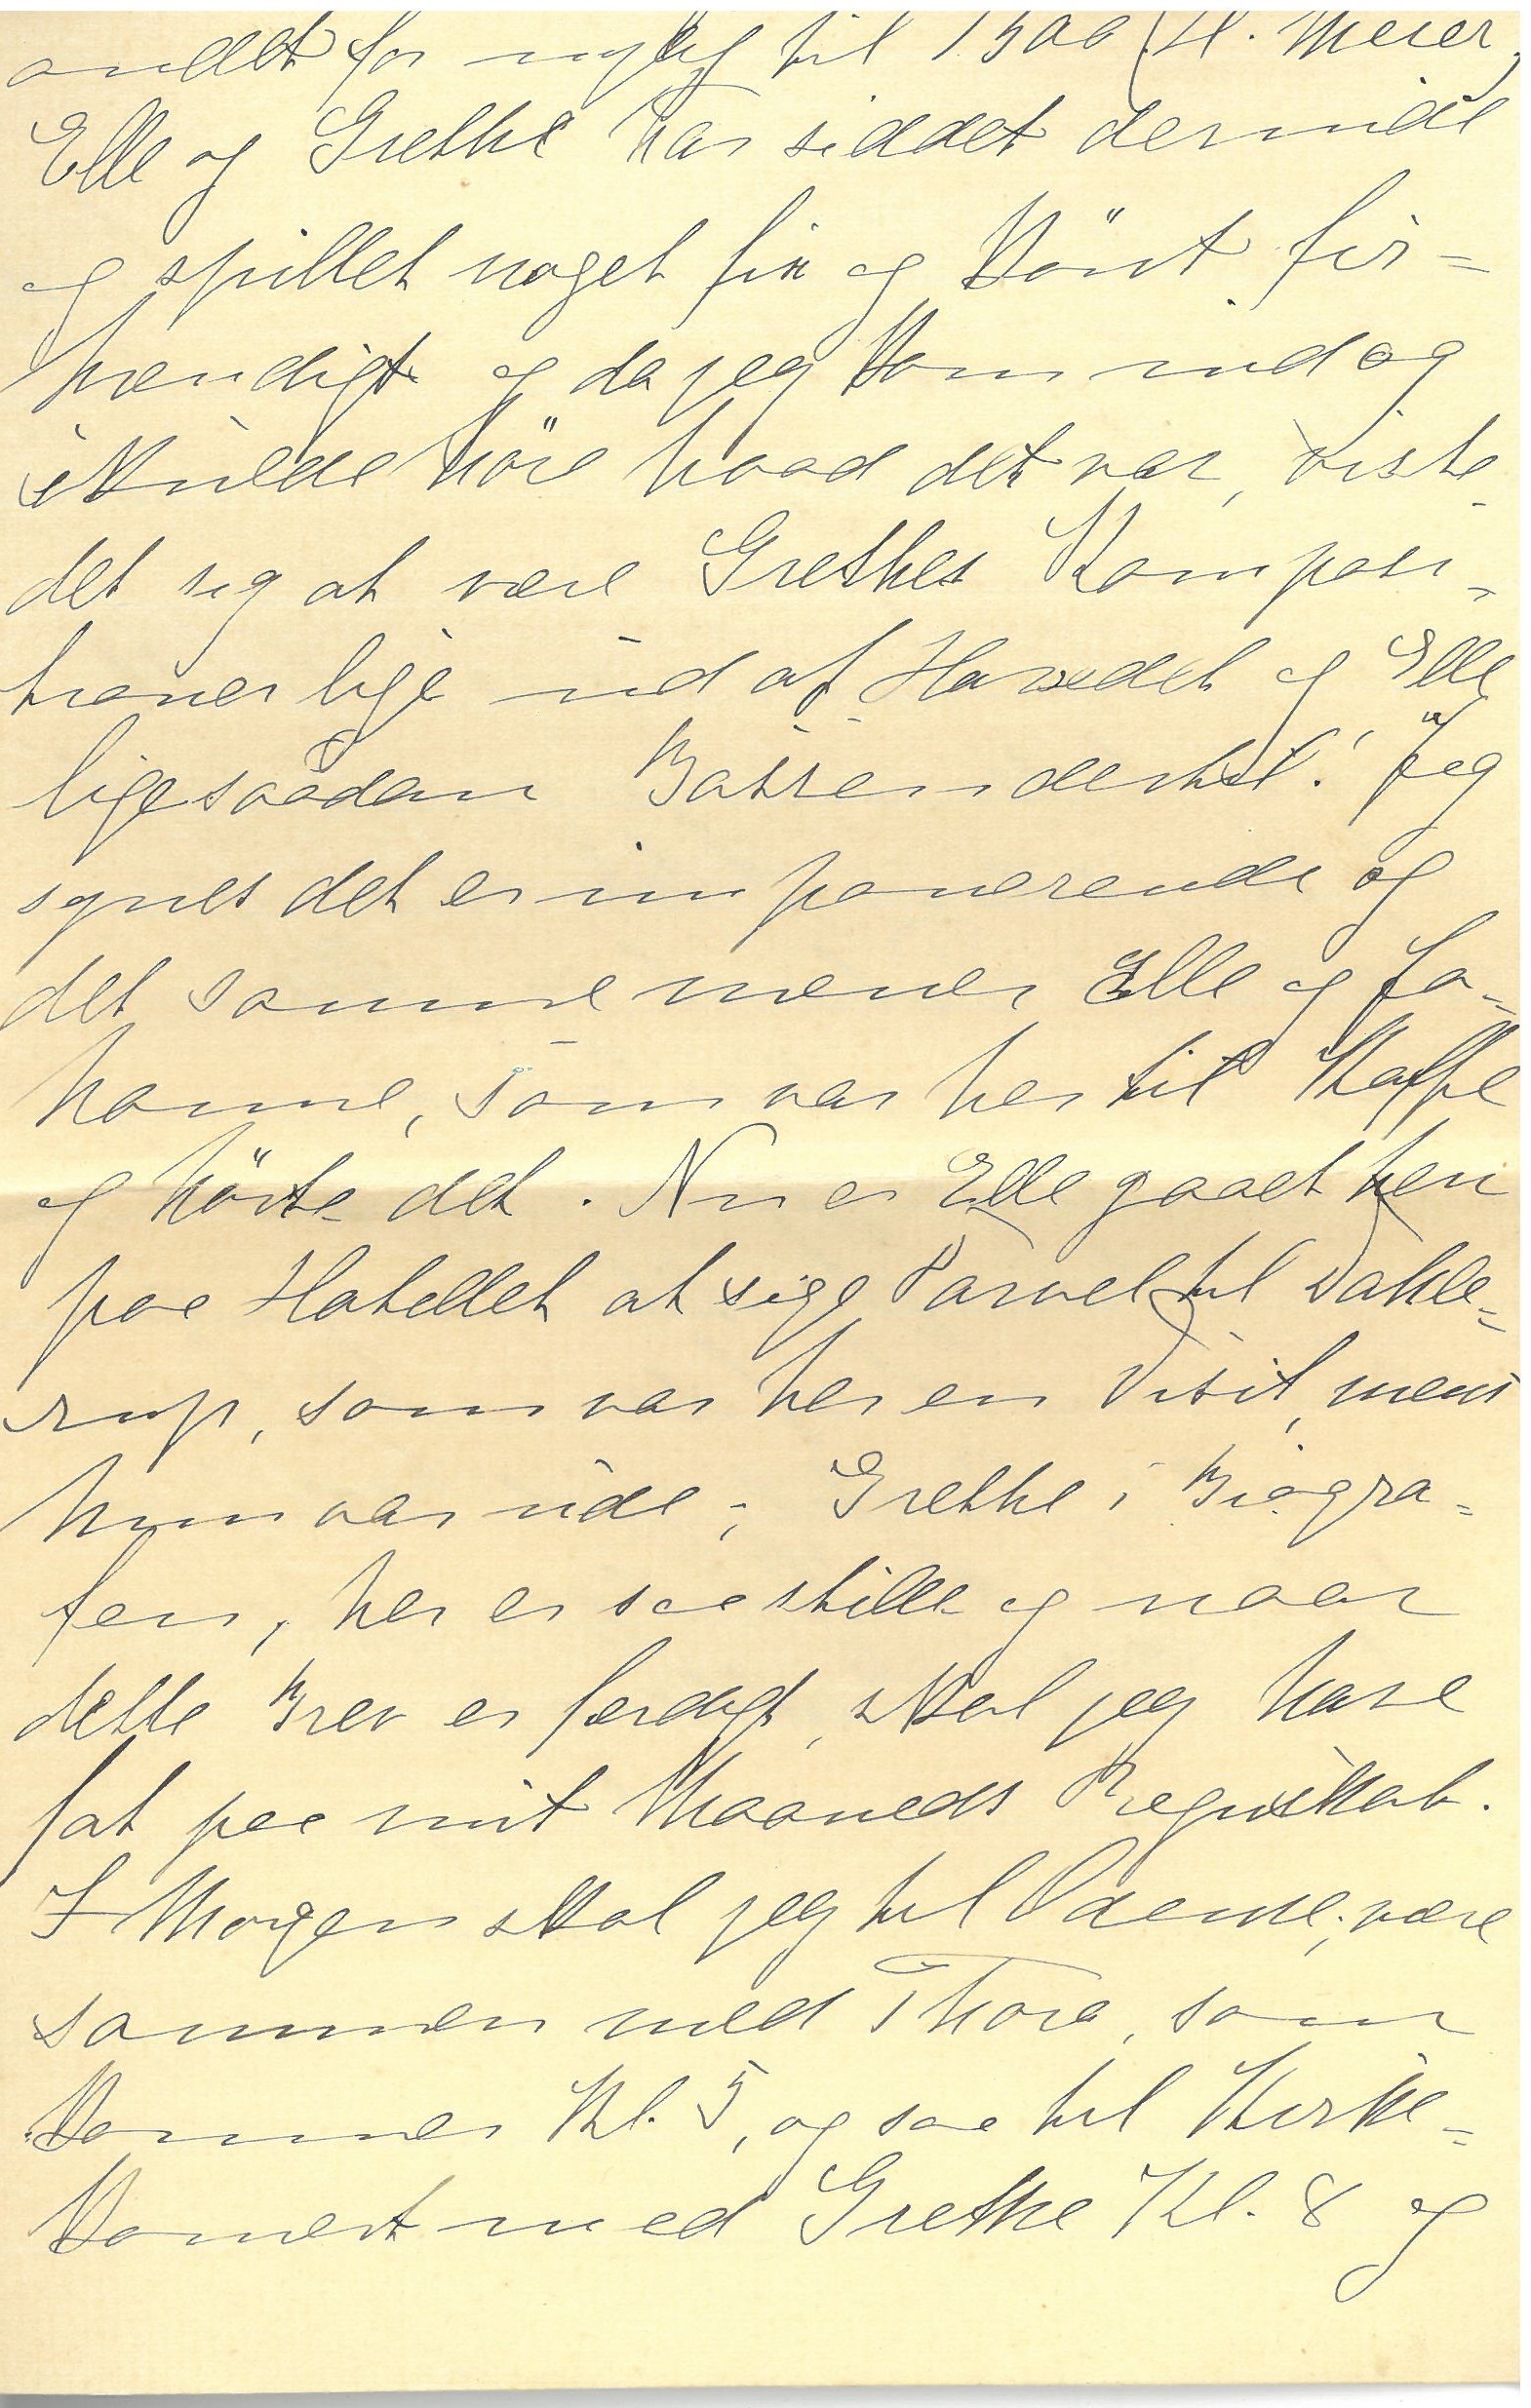 andet for nylig til 1500 (H. Meier,
Elle og Grethe har siddet derinde
og spillet noget fin og könt fir=
hændigt og da jeg kom ind og
skulde höre hvad det var, viste
det sig at være Grethes Komposi-
tioner lige ud af Hovedet og Elle
ligesaadan Bassen dertil! Jeg
synes det er imponerende og
det samme mener Elle og Jo-
hanne, som var her til Kaffe
og hörte det. Nu er Elle gaaet hen
paa Hotellet at sige Farvel til Dahle=
rup, som var her en Visit, mens
hun var ude; Grethe i Biogra=
fen, her er saa stille og naar
dette Brev er færdigt, skal jeg have
fat paa mit Maaneds Regnskab.
I Morgen skal jeg til Odense; være
sammen med Thora, som
kommer Kl. 5, og saa til Kirke=
koncert med Grethe Kl. 8 og